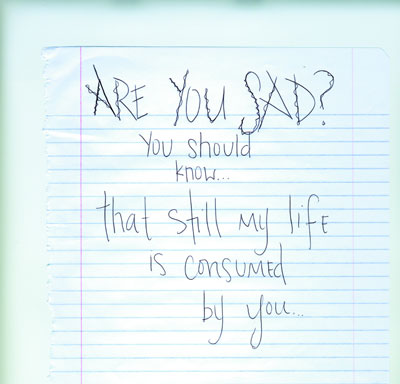 ARE YOU SAD?
You should
know...
that still my life
is consumed
by you...